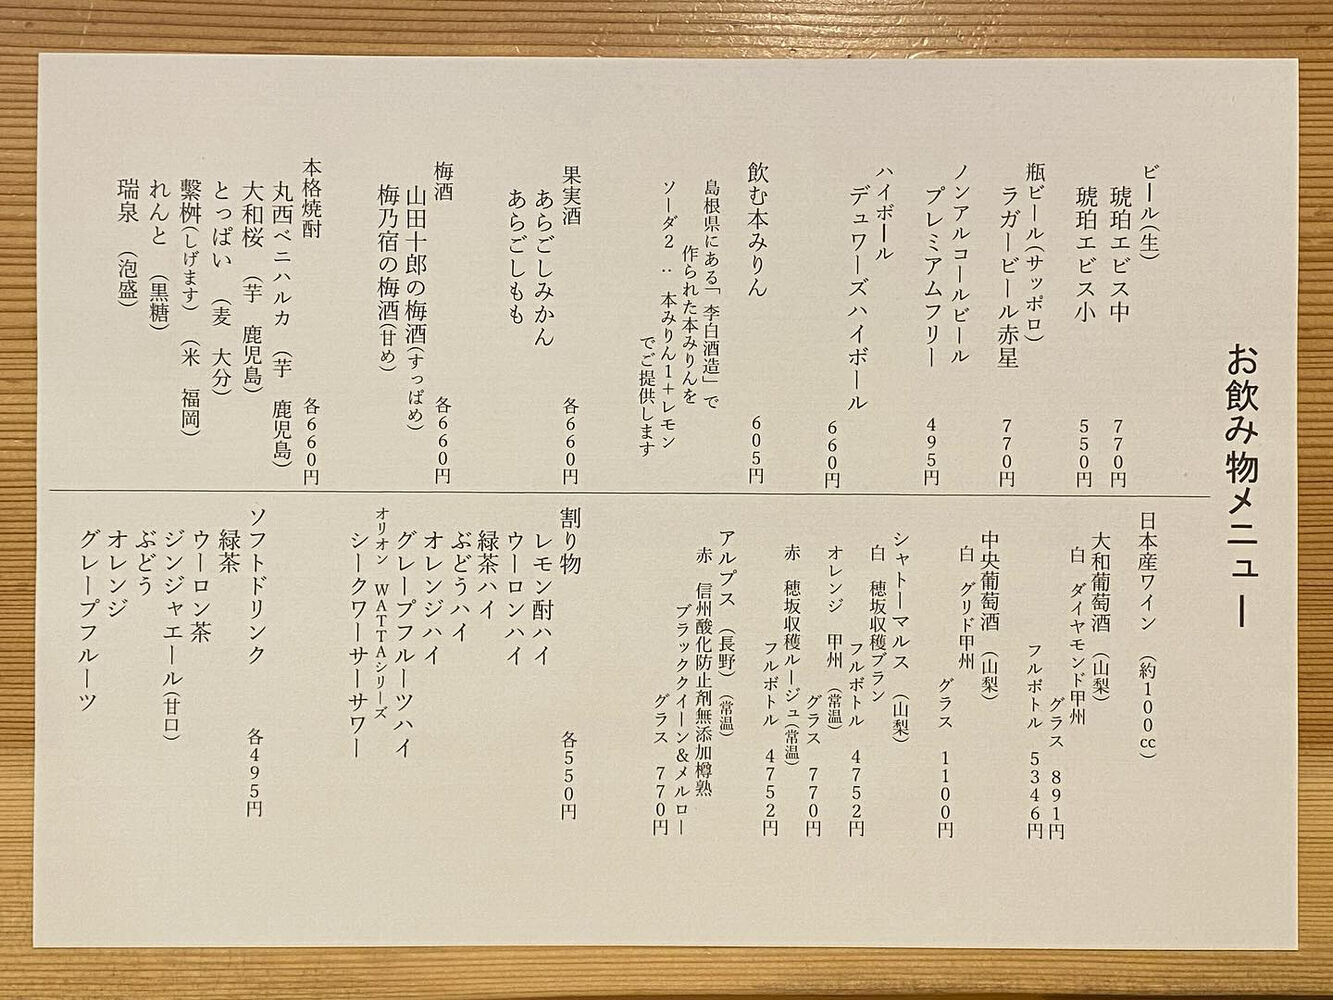 お飲み物メニュー
ビール(生)
琥珀エビス中 770円
琥珀エビス小 550円
瓶ビール(サッポロ)
ラガービール赤星 770円
ノンアルコールビール
プレミアムフリー 495円
ハイボール
デュワーズハイボール 660円
飲む本みりん 605円
島根県にある「李白酒造」で
作られた本みりんを
ソーダ2:本みりん1+レモン
でご提供します
果実酒 各660円
あらごしみかん
あらごしもも
梅酒 各660円
山田十郎の梅酒(すっぱめ)
梅乃宿の梅酒(甘め)
本格焼酎 各660円
丸西ベニハルカ (芋 鹿児島)
大和桜 (芋 鹿児島)
とっぱい (麦 大分)
繫桝(しげます) (米 福岡)
れんと (黒糖)
瑞泉 (泡盛)
日本産ワイン (約100cc)
大和葡萄酒 (山梨)
白 ダイヤモンド甲州
グラス 891円
フルボトル 5346円
中央葡萄酒 (山梨)
白 グリド甲州
グラス 1100円
シャトーマルス (山梨)
白 穂坂収穫ブラン
フルボトル 4752円
オレンジ 甲州 (常温)
グラス 770円
赤 穂坂収穫ルージュ(常温)
フルボトル 4752円
アルプス (長野) (常温)
赤 信州酸化防止剤無添加樽熟
ブラッククイーン&メルロー
グラス 770円
割り物 各550円
レモン酎ハイ
ウーロンハイ
緑茶ハイ
ぶどうハイ
オレンジハイ
グレープフルーツハイ
オリオン WATTAシリーズ
シークワーサーサワー
ソフトドリンク 各495円
緑茶
ウーロン茶
ジンジャエール(甘口)
ぶどう
オレンジ
グレープフルーツ